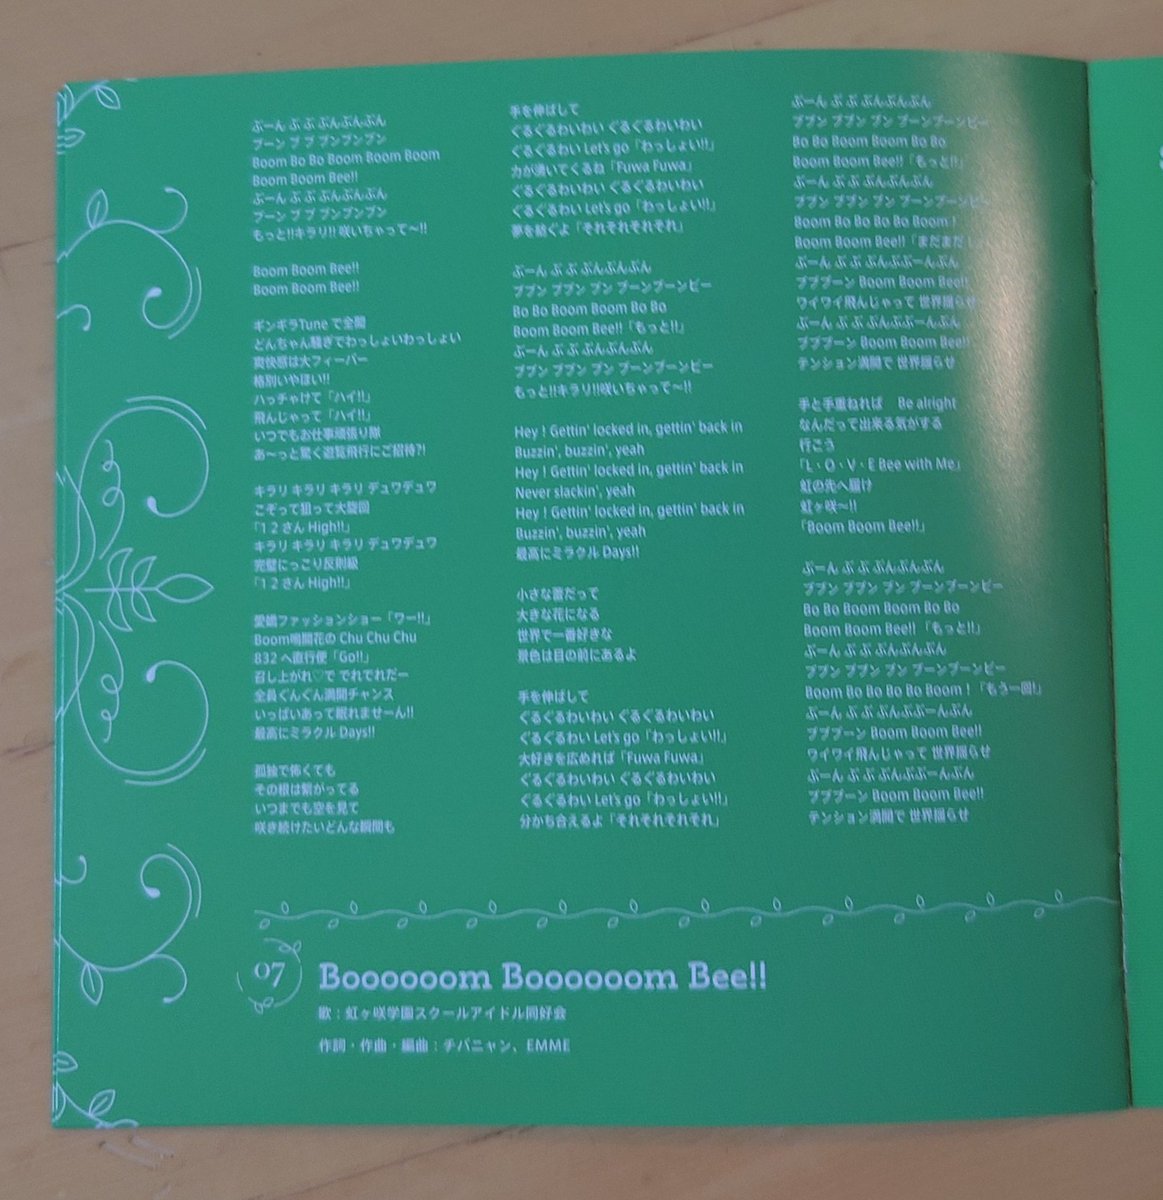 ぶーん ぶ ぶ ぶんぶんぶん
ブーン ブ ブ ブンブンブン
Boom Bo Bo Boom Boom Boom
Boom Boom Bee!!
ぶーん ぶ ぶ ぶんぶんぶん
ブーン ブ ブ ブンブンブン
もっと!!キラリ!! 咲いちゃって〜!!
Boom Boom Bee!!
Boom Boom Bee!!
ギンギラTune で全開
どんちゃん騒ぎでわっしょいわっしょい
爽快感は大フィーバー
格別いやほい!!
ハッチャけて「ハイ!!」
飛んじゃって「ハイ!!」
いつでもお仕事頑張り隊
あ〜っと驚く遊覧飛行にご招待?!
キラリ キラリ キラリ デュワデュワ
こぞって狙って大旋回
「1 2 さん High!!」
キラリ キラリ キラリ デュワデュワ
完璧にっこり反則級
「1 2 さん High!!」
愛嬌ファッションショー「ワー!!」
Boom鳴開花の Chu Chu Chu
832 へ直行便「Go!!」
召し上がれ♡で でれでれだー
全員ぐんぐん満開チャンス
いっぱいあって眠れませーん!!
最高にミラクル Days!!
孤独で怖くても
その根は繋がってる
いつまでも空を見て
咲き続けたいどんな瞬間も
手を伸ばして
ぐるぐるわいわい ぐるぐるわいわい
ぐるぐるわい Let's go「わっしょい!!」
力が湧いてくるね「Fuwa Fuwa」
ぐるぐるわいわい ぐるぐるわいわい
ぐるぐるわい Let's go「わっしょい!!」
夢を紡ぐよ「それそれそれそれ」
ぶーん ぶ ぶ ぶんぶんぶん
ブブン ブブン ブン ブーンブーンビー
Bo Bo Boom Boom Bo Bo
Boom Boom Bee!!「もっと!!」
ぶーん ぶ ぶ ぶんぶんぶん
ブブン ブブン ブン ブーンブーンビー
もっと!!キラリ!!咲いちゃって〜!!
Hey ! Gettin' locked in, gettin' back in
Buzzin', buzzin', yeah
Hey ! Gettin' locked in, gettin' back in
Never slackin', yeah
Hey ! Gettin' locked in, gettin' back in
Buzzin', buzzin', yeah
最高にミラクル Days!!
小さな蕾だって
大きな花になる
世界で一番好きな
景色は目の前にあるよ
手を伸ばして
ぐるぐるわいわい ぐるぐるわいわい
ぐるぐるわい Let's go「わっしょい!!」
大好きを広めれば「Fuwa Fuwa」
ぐるぐるわいわい ぐるぐるわいわい
ぐるぐるわい Let's go「わっしょい!!」
分かち合えるよ「それそれそれそれ」
ぶーん ぶ ぶ ぶんぶんぶん
ブブン ブブン ブン ブーンブーンビー
Bo Bo Boom Boom Bo Bo
Boom Boom Bee!!「もっと!!」
ぶーん ぶ ぶ ぶんぶんぶん
ブブン ブブン ブン ブーンブーンビー
Boom Bo Bo Bo Bo Boom !
Boom Boom Bee!!「まだまだ
ぶーん ぶ ぶ ぶんぶぶーんぶん
ブブブーン Boom Boom Bee!!
ワイワイ飛んじゃって 世界揺らせ
ぶーん ぶ ぶ ぶんぶぶーんぶん
ブブブーン Boom Boom Bee!!
テンション満開で 世界揺らせ
手と手重ねれば Be alright
なんだって出来る気がする
行こう
「L・O・V・E Bee with Me」
虹の先へ届け
虹ヶ咲〜!!
「Boom Boom Bee!!」
ぶーん ぶ ぶ ぶんぶんぶん
ブブン ブブン ブン ブーンブーンビー
Bo Bo Boom Boom Bo Bo
Boom Boom Bee!! 「もっと!!」
ぶーん ぶ ぶ ぶんぶんぶん
ブブン ブブン ブン ブーンブーンビー
Boom Bo Bo Bo Bo Boom !「もう一回!」
ぶーん ぶ ぶ ぶんぶぶーんぶん
ブブブーン Boom Boom Bee!!
ワイワイ飛んじゃって 世界揺らせ
ぶーん ぶ ぶ ぶんぶぶーんぶん
ブブブーン Boom Boom Bee!!
テンション満開で 世界揺らせ
07 Boooooom Boooooom Bee!!
歌：虹ヶ咲学園スクールアイドル同好会
作詞・作曲・編曲：チバニャン、EMME